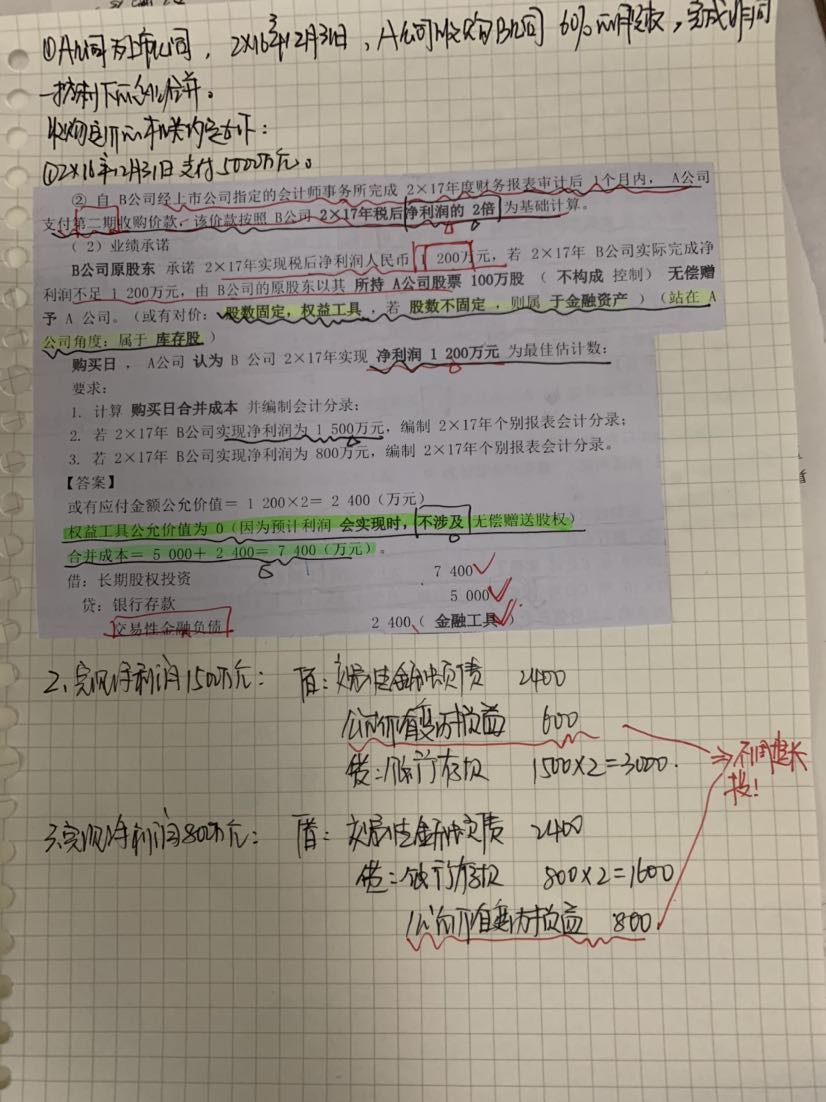 ①A公司为上市公司，2×16年12月31日，A公司收购B公司60%的股权，完成非同
一控制下的企业合并。
收购定价的相关约定如下：
①2×16年12月31日支付5000万元。
② 自 B公司经上市公司指定的会计师事务所完成 2×17年度财务报表审计后 1个月内， A公司
支付第二期收购价款，该价款按照 B公司 2×17年税后净利润的 2倍 为基础计算。
（ 2）业绩承诺
B公司原股东 承诺 2×17年实现税后净利润人民币 1 200万元，若 2×17年 B公司实际完成净
利润不足 1 200万元，由 B公司的原股东以其 所持 A公司股票 100万股 （ 不构成 控制） 无偿赠
予 A 公司。（或有对价： 股数固定，权益工具 ，若 股数不固定 ，则属 于金融资产 ）（站在 A
公司角度：属于 库存股 ）
购买日 ， A公司 认为 B 公司 2×17年实现 净利润 1 200万元 为最佳估计数；
要求：
1. 计算 购买日合并成本 并编制会计分录；
2. 若 2×17年 B公司实现净利润为 1 500万元，编制 2×17年个别报表会计分录；
3. 若 2×17年 B公司实现净利润为 800万元，编制 2×17年个别报表会计分录。
【答案】
或有应付金额公允价值＝ 1 200×2＝ 2 400（万元）
权益工具公允价值为 0（因为预计利润 会实现时， 不涉及 无偿赠送股权）
合并成本＝ 5 000＋ 2 400＝ 7 400（万元） 。
借：长期股权投资 7 400
贷：银行存款 5 000
交易性金融负债 2 400（ 金融工具 ）
2、实现净利润1500万元： 借：交易性金融负债 2400
公允价值变动损益 600
贷：银行存款 1500×2=3000.
⇒不调整长
投！
3.实现净利润800万元： 借：交易性金融负债 2400
贷：银行存款 800×2=1600
公允价值变动损益 800